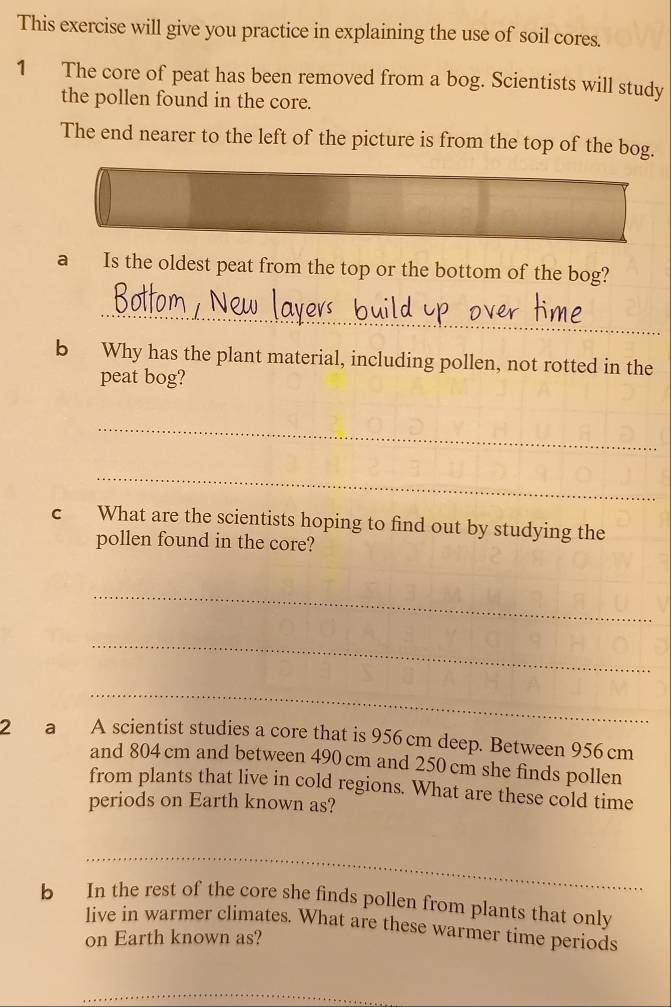 This exercise will give you practice in explaining the use of soil cores.
1 The core of peat has been removed from a bog. Scientists will study
the pollen found in the core.
The end nearer to the left of the picture is from the top of the bog.
a Is the oldest peat from the top or the bottom of the bog?
Bottom, New layers build up over time
b Why has the plant material, including pollen, not rotted in the
peat bog?
c What are the scientists hoping to find out by studying the
pollen found in the core?
2 a A scientist studies a core that is 956 cm deep. Between 956 cm
and 804 cm and between 490 cm and 250 cm she finds pollen
from plants that live in cold regions. What are these cold time
periods on Earth known as?
b In the rest of the core she finds pollen from plants that only
live in warmer climates. What are these warmer time periods
on Earth known as?